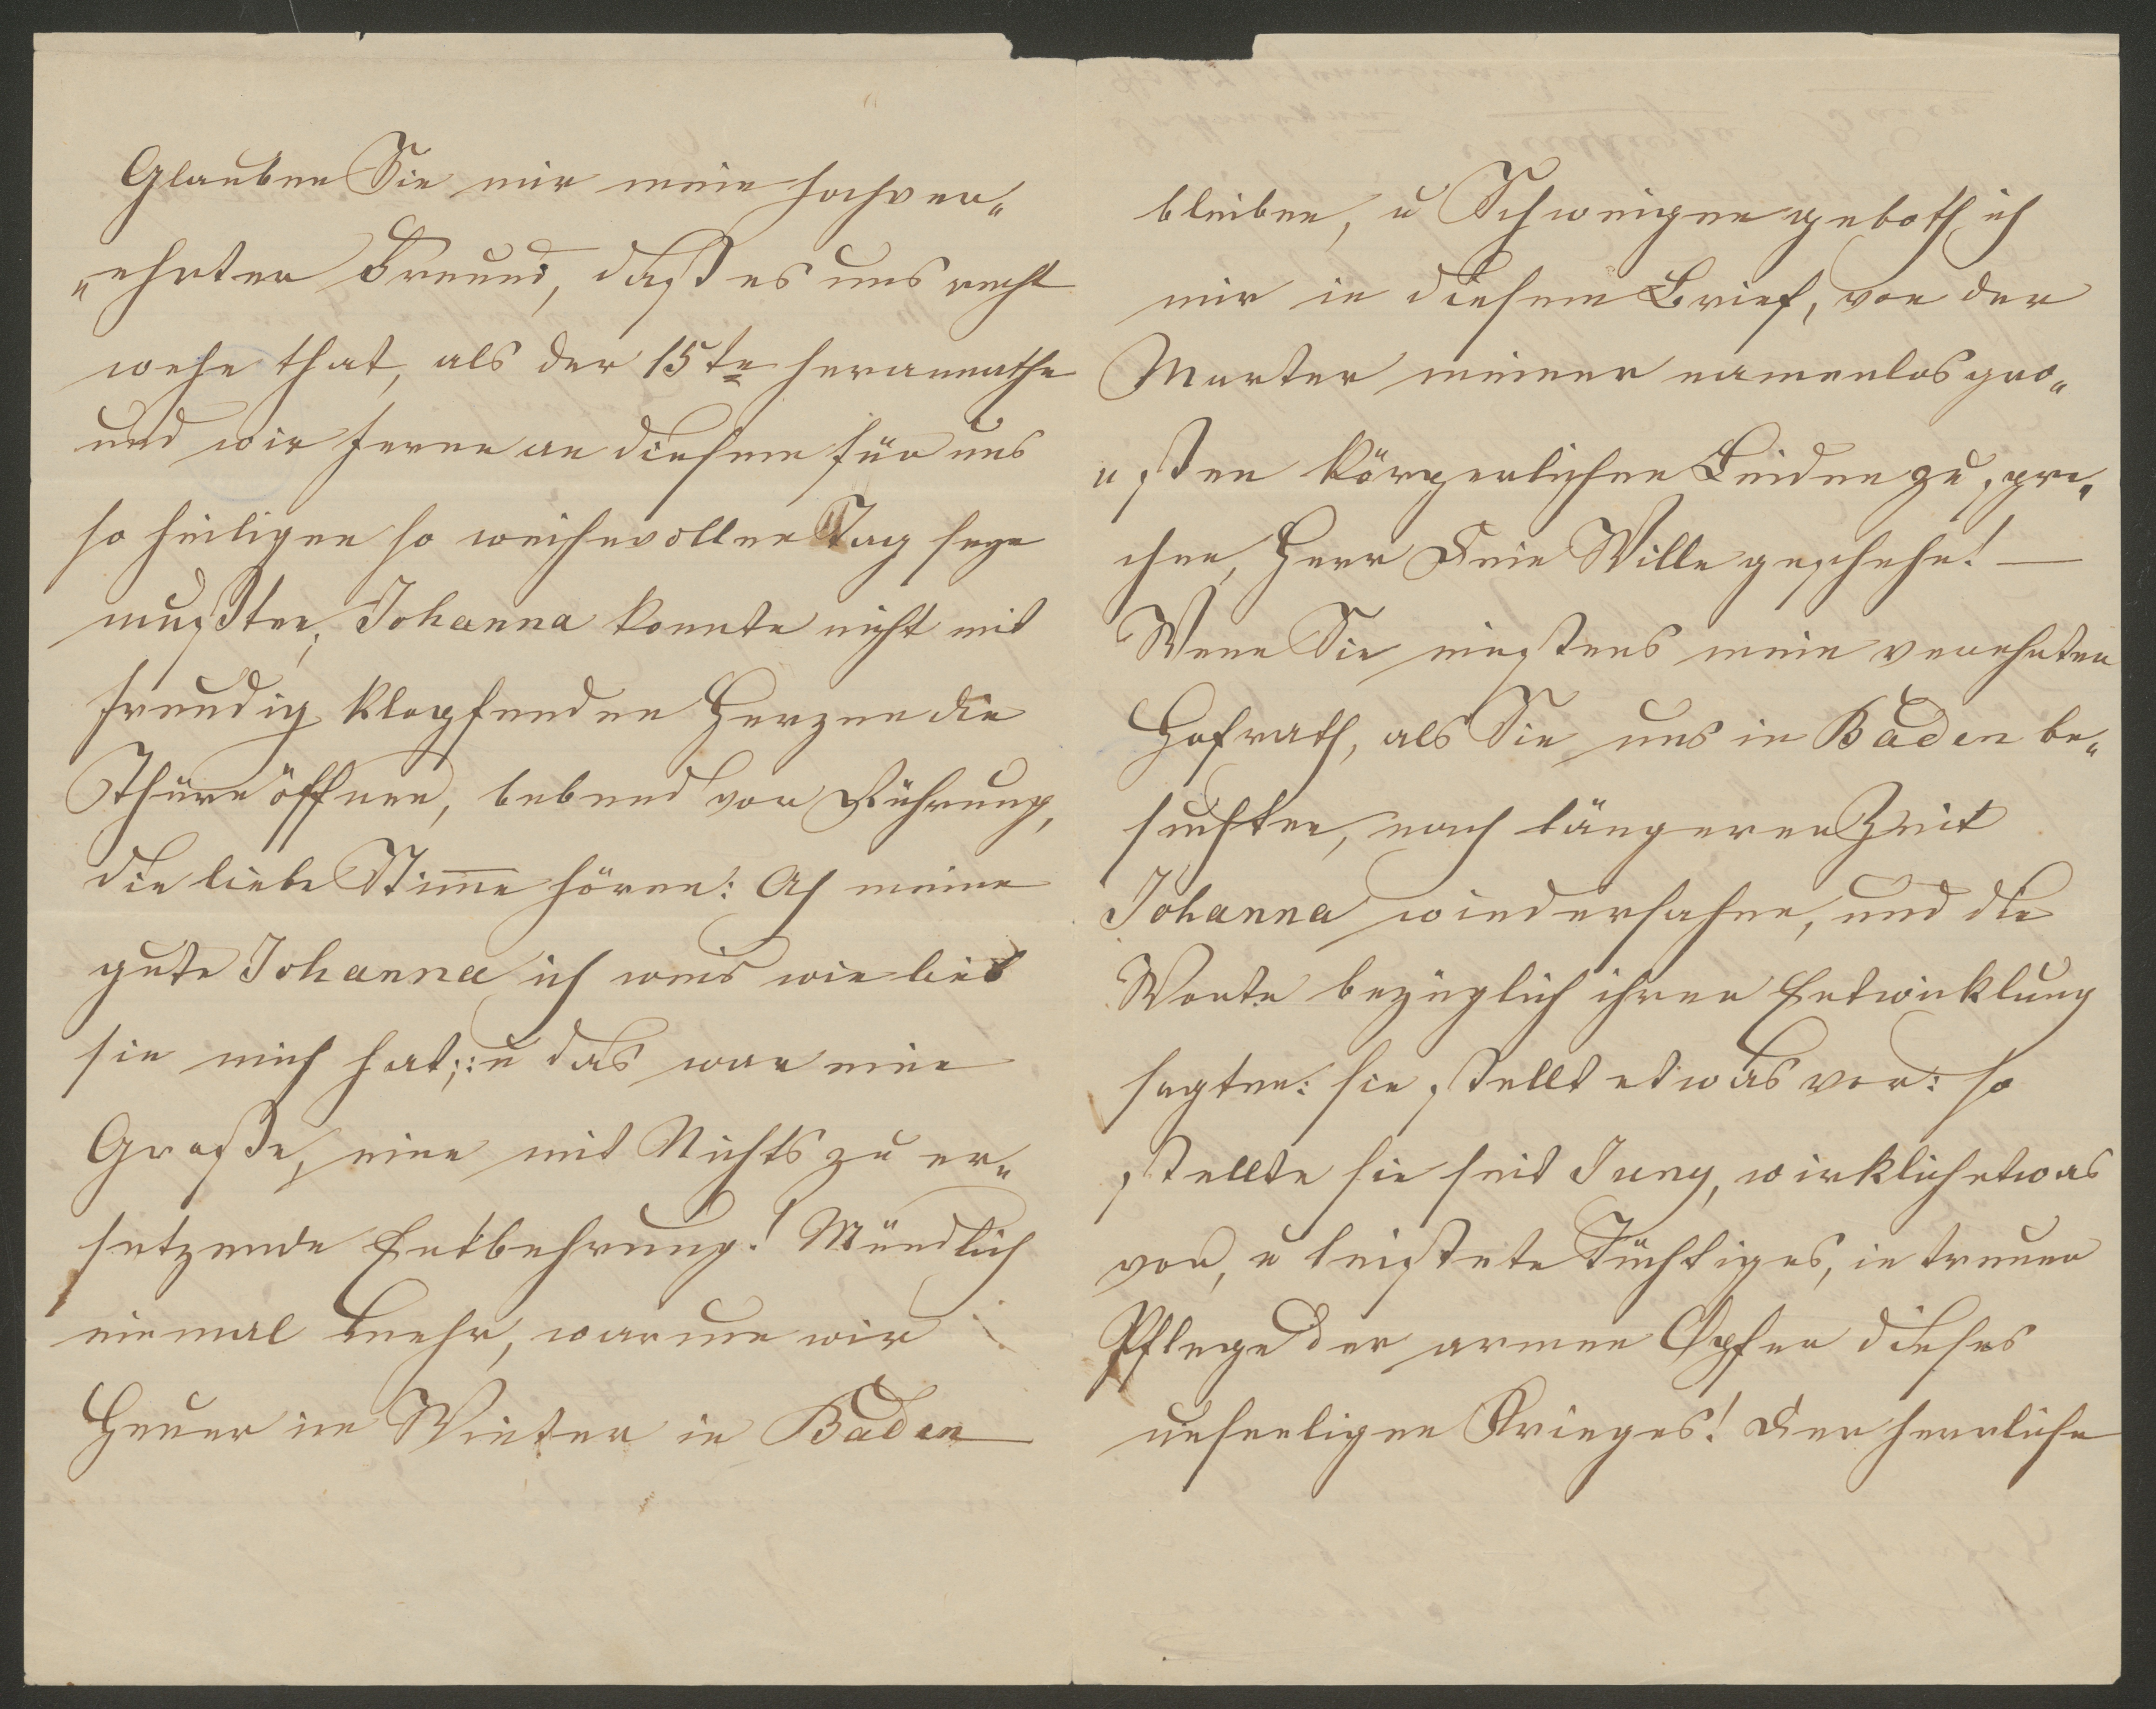 Glauben Sie mir mein hochver„
„ehrter Freund, daß es uns recht
wehe that, als der 15te herannathe
und wir ferne an diesem für uns
so heiligen so weihevollen Tag sein
mußten, Johanna konnte nicht mit
freudig klopfenden Herzen die
Thüre öffnen, bebend vor Rührung,
die liebe Stimme hören: Ach meine
gute Johanna ich weis wie lieb
sie mich hat; : u das war eine
Große, eine mit Nichts zu er„
setzende Entbehrung! Mündlich
einmal mehr, warum wir
Heuer im Winter in Baden
bleiben, u Schweigen geboth ich
mir in diesem Brief, von der
Marter meiner namenlos gro„
„ßen körperlichen Leiden zu spre„
chen, Herr Dein Wille geschehe! —
Wenn Sie einstens mein verehrter
Hofrath, als Sie uns in Baden be„
suchten, nach längerer Zeit
Johanna wiedersahen, und die
Worte bezüglich ihrer Entwicklung
sagten: sie stellt etwas vor: so
stellte sie seit Juny, wirklich etwas
vor, u leistete Tüchtiges, in treuer
Pflege der armen Opfer dieses
unseeligen Krieges! Der herrliche